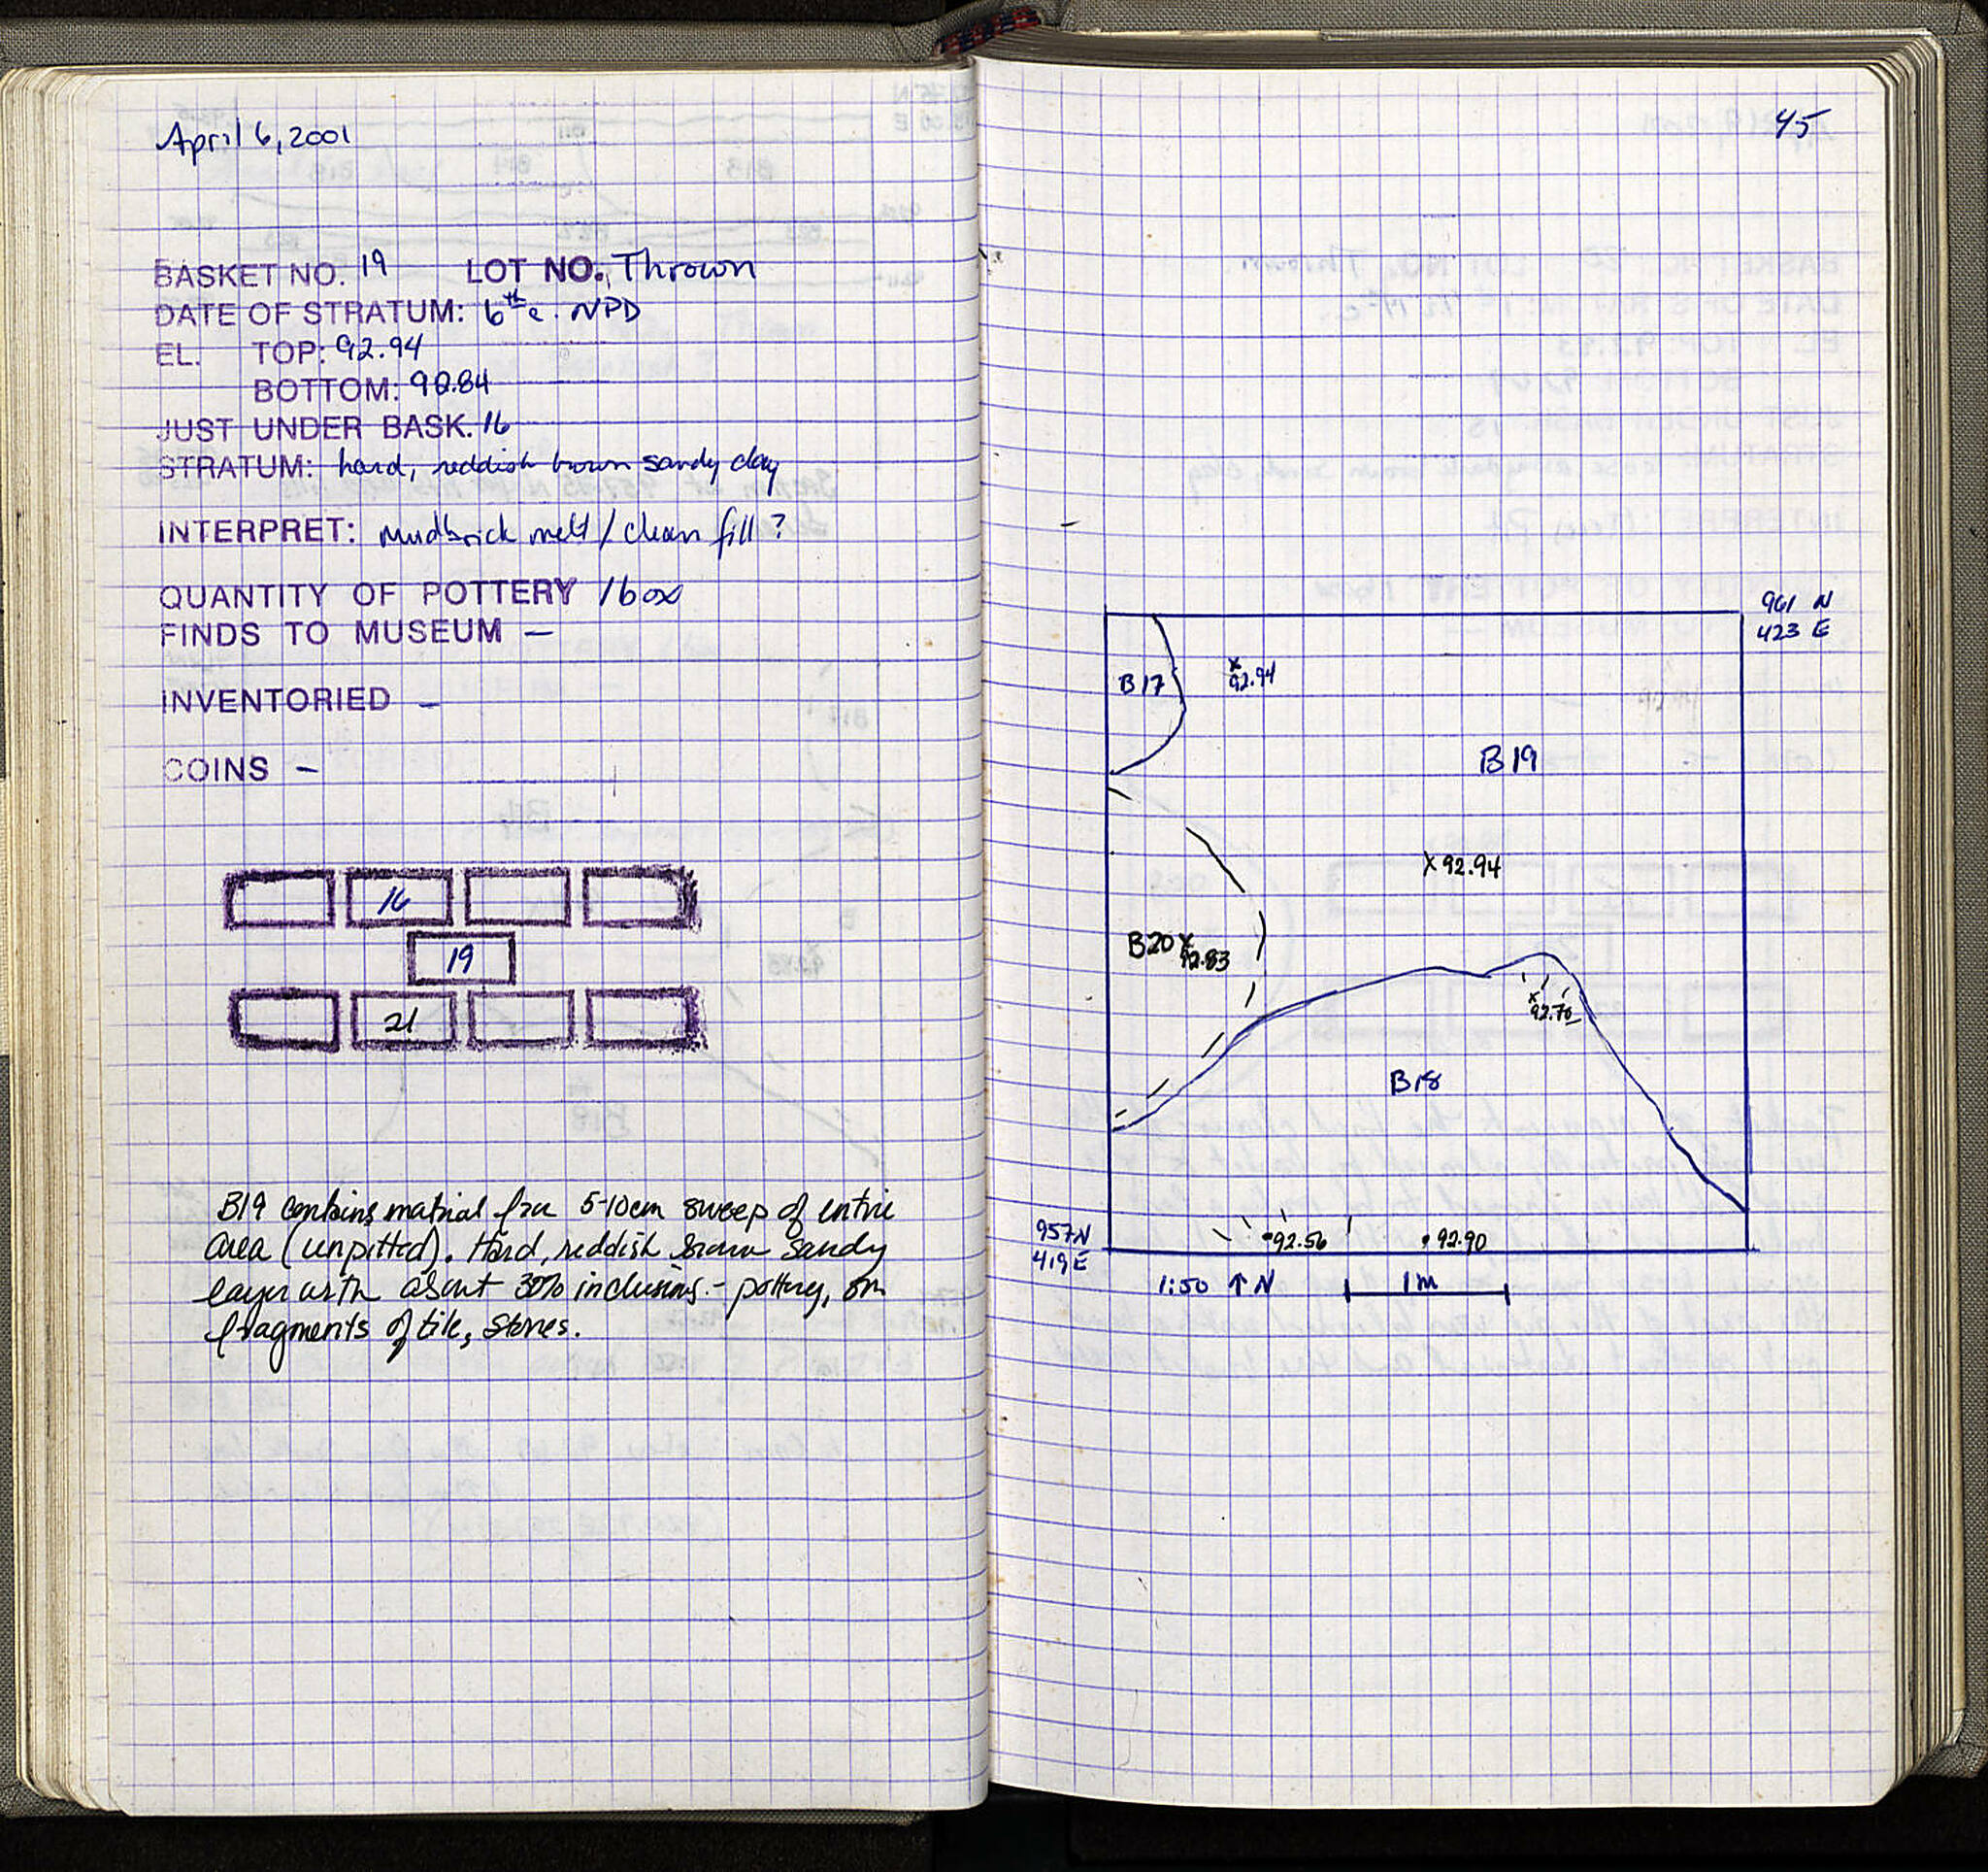 April 6, 2001
BASKET NO. 19 LOT NO. Thrown
DATE OF STRATUM: 6th c. NPD
EL. TOP: 92.94
BOTTOM: 90.84
JUST UNDER BASK. 16
STRATUM: hard, reddish brown sandy clay
INTERPRET: Mudbrick melt / clean fill?
QUANTITY OF POTTERY 1 box
FINDS TO MUSEUM —
INVENTORIED —
COINS —
16
19
21
B19 contains material from 5-10cm sweep of entire
area (unpitted). Hard, reddish brown sandy
layer with about 30% inclusions - pottery, sm
fragments of tile, stones.
45
961 N
423 E
B17
x
92.94
B19
x 92.94
B20 x
92.83
x
92.70
B18
957N
419E
92.56
92.90
1:50 ↑ N 1m